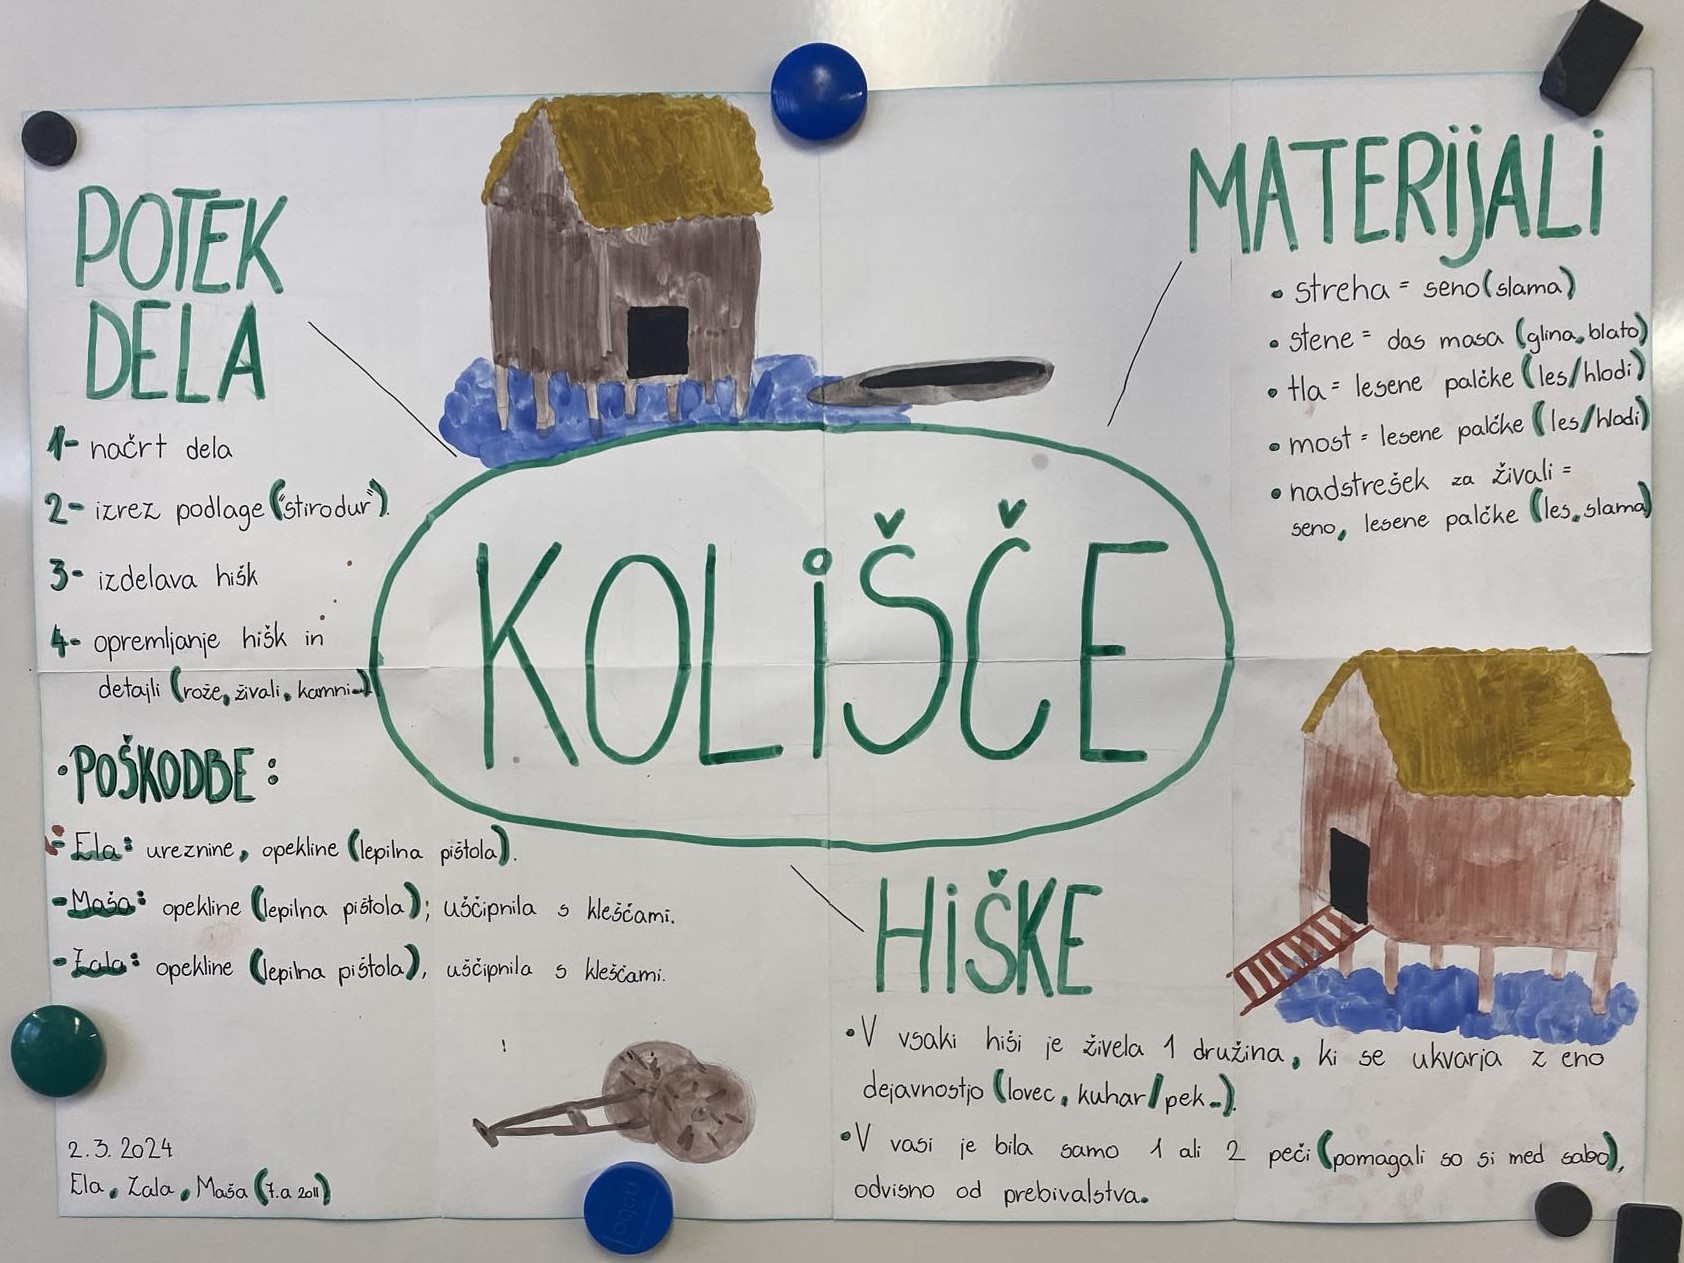 POTEK
DELA
1- načrt dela
2- izrez podlage ("stirodur").
3- izdelava hišk
4- opremljanje hišk in
detajli (rože, živali, kamni...)
• POŠKODBE:
- Ela: ureznine, opekline (lepilna pištola).
- Maša: opekline (lepilna pištola); uščipnila s kleščami.
- Zala: opekline (lepilna pištola), uščipnila s kleščami.
2.3.2024
Ela, Zala, Maša (7.a 2011)
KOLiŠČE
MATERiJALi
• streha = seno (slama)
• stene = das masa (glina, blato)
• tla = lesene palčke (les/hlodi)
• most = lesene palčke (les/hlodi)
• nadstrešek za živali =
seno, lesene palčke (les, slama)
HiŠKE
• V vsaki hiši je živela 1 družina, ki se ukvarja z eno
dejavnostjo (lovec, kuhar/pek...).
• V vasi je bila samo 1 ali 2 peči (pomagali so si med sabo),
odvisno od prebivalstva.